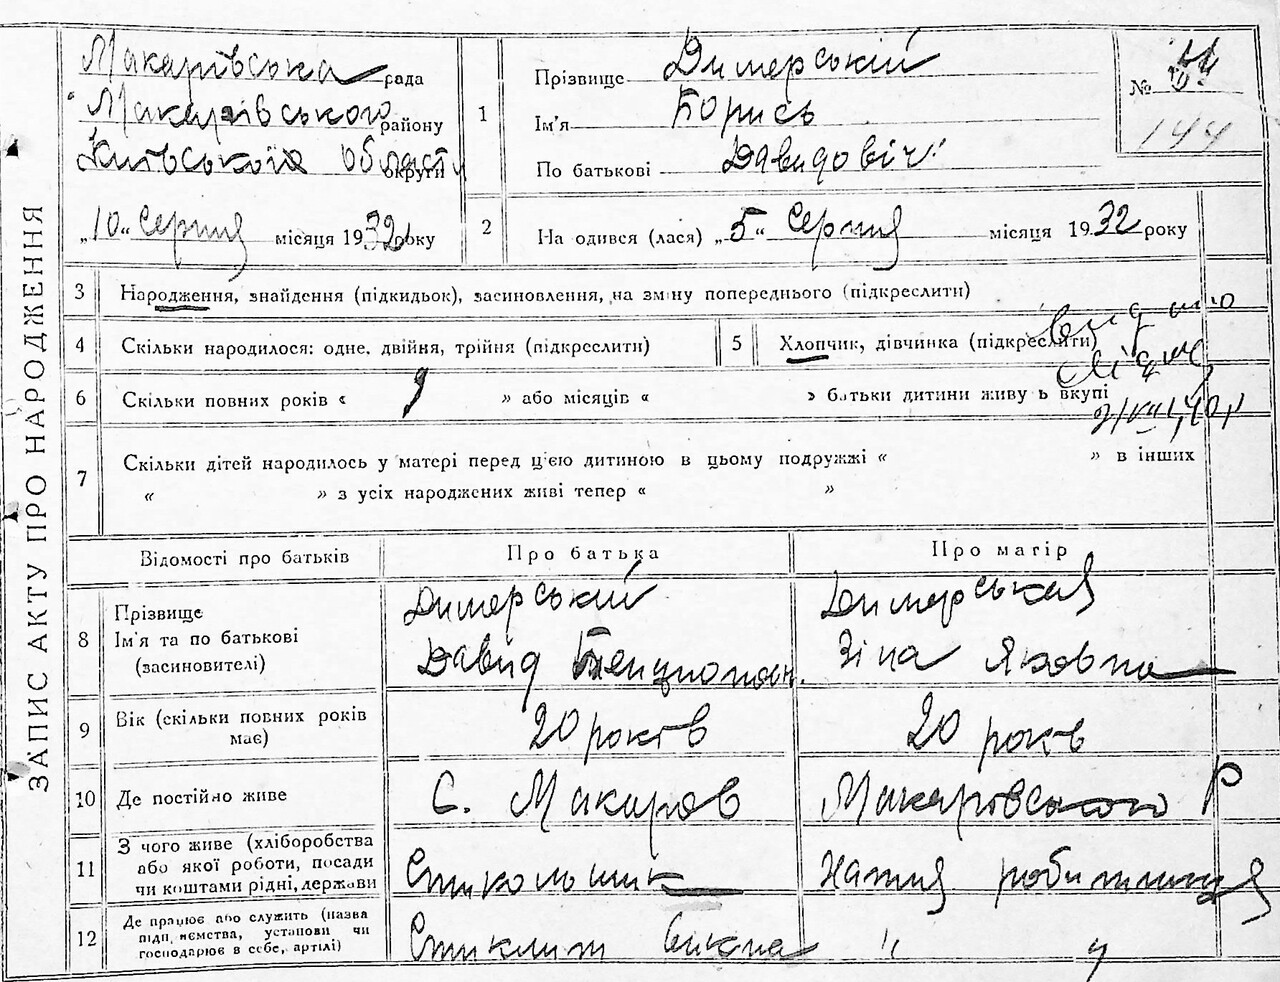 ЗАПИС АКТУ ПРО НАРОДЖЕННЯ
Макарівська рада
Макарівського району
Київської області округи
„10“ серпня місяця 1932 року
1
Прізвище Димерській
Ім'я Борись
По батькові Давидовіч
№ 144
2
На одився (лася) „5“ серпня місяця 1932 року
3 Народження, знайдення (підкидьок), засиновлення, на зміну попереднього (підкреслити)
4 Скільки народилося: одне, двійня, трійня (підкреслити)
5 Хлопчик, дівчинка (підкреслити)
6 Скільки повних років « » або місяців « » батьки дитини живу ь вкупі
7 Скільки дітей народилось у матері перед ц'єю дитиною в цьому подружжі « » в інших
« » з усіх народжених живі тепер « »
Відомості про батьків Про батька Про матір
8 Прізвище
Ім'я та по батькові
(засиновителі)
Димерський
Давид Бенционов.
Димерська
Зіна Яковна
9 Вік (скільки повних років має)
20 років
20 років
10 Де постійно живе
С. Макаров
Макаровського р
11 З чого живе (хліборобства
або якої роботи, посади
чи коштами рідні, держави
Стикольшик
Хатня робитниця
12 Де працює або служить (назва
підп иємства, установи чи
господарює в себе, артілі)
Стиклит окна
" "